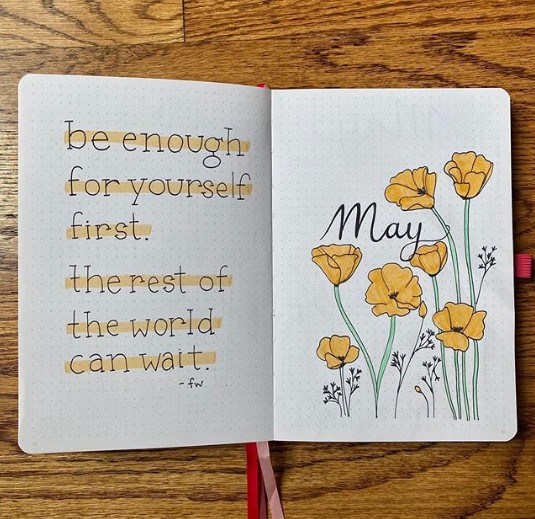 be enough
for yourself
first.
the rest of
the world
can wait.
-fw
May